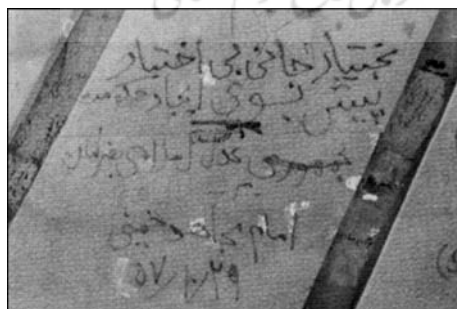 بختیار جانی بی اختیار
پیش بسوی ایجاد حکومت
جمهوری عدل اسلامی بفرمان
امام مجاهد خمینی
۵۷/۱۰/۲۹